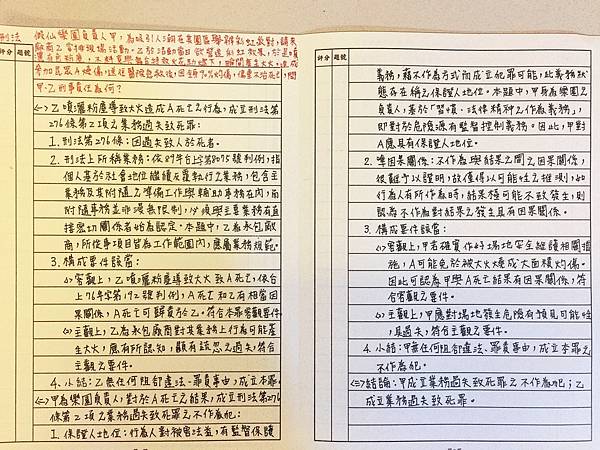 刑法
評分 題號
假仙樂園負責人甲,為吸引人潮在其園區舉辦彩虹派對,請來
廠商乙安排現場活動。乙於活動當日
參加民眾A燒傷,送往醫院急救後,因
甲、乙刑事責任為何?
㈠乙噴灑粉塵導致大火造成A死亡之行為,成立刑法第
276條第2項之業務過失致死罪:
1. 刑法第276條:因過失致人於死者。
2. 刑法上所稱業務:依89年台上第8075號判例,指
個人基於社會地位繼續反覆執行之事務,包含主
業務及其附隨之準備工作與輔助事務在內,而
附隨事務並非漫無限制,必須與主要業務有直
接密切關係者始為認定。本題中,乙為承包廠
商,所從事項目皆為工作範圍內,應屬業務規範。
3. 構成要件該當:
⑴客觀上,乙噴灑粉塵導致大火致A死亡,依台
上76年字第192號判例,A死亡和乙有相當因
果關係,A死亡可歸責於乙。符合本罪客觀要件。
⑵主觀上,乙為承包廠商對其業務上行為可能產
生大火,應有所認知,顯有該忽之過失,符合
主觀之要件。
4. 小結:乙無任何阻卻違法、罪責事由,成立本罪。
㈡甲為樂園負責人,對於A死亡之結果,成立刑法第276
條第2項之業務過失致死罪之不作為犯:
1. 保證人地位:行為人對被害法益,有監督保護
評分 題號
義務,藉不作為方式而成立犯罪可能,此義務狀
態存在稱之保證人地位。本題中,甲身為樂園之
負責人,基於「習慣、法律精神之作為義務」,
即對於危險源有監督控制義務。因此,甲對
A應具有保證人地位。
2. 準因果關係:不作為與結果之間之因果關係,
很難予以證明,故僅得以可能性之推測,如
行為人有所作為時,結果極可能不致發生,則
認為不作為對結果之發生具有因果關係。
3. 構成要件該當:
⑴客觀上,甲若確實作好場地安全維護相關措
施,A可能免於被大火燒成大面積灼傷。
因此可認為甲與A死亡結果有因果關係,符
合客觀之要件。
⑵主觀上,甲應對場地發生危險有預見可能性
,具過失,符合主觀之要件。
4. 小結:甲無任何阻卻違法、罪責事由,成立本罪之
不作為犯。
㈢結論:甲成立業務過失致死罪之不作為犯;乙
成立業務過失致死罪。